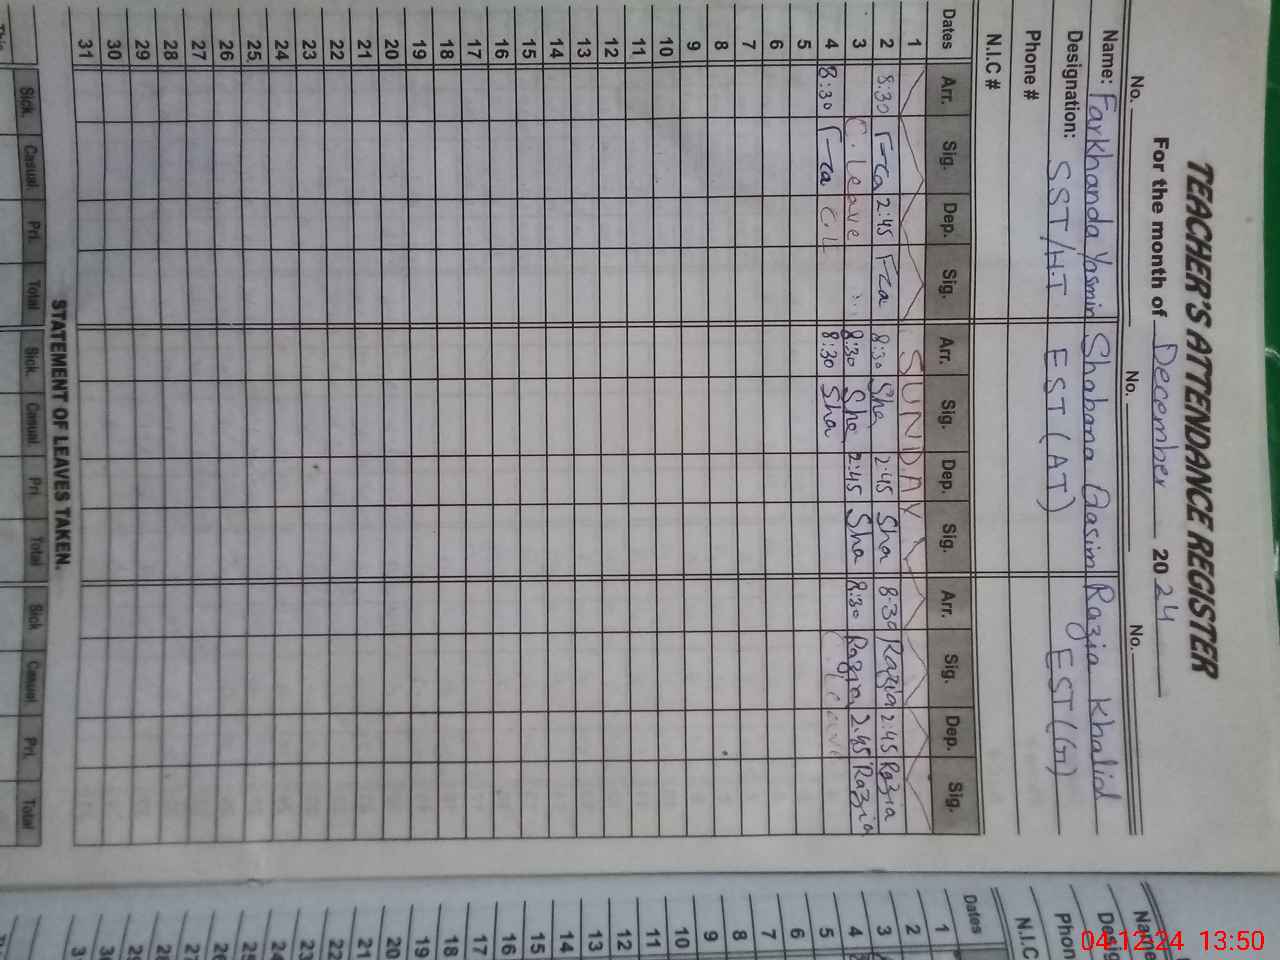 TEACHER'S ATTENDANCE REGISTER
For the month of December 2024
No. No. No.
Name: Farkhanda Yasmin Shabana Qasim Razia Khalid
Designation: SST/H.T EST (AT) EST (G)
Phone #
N.I.C #
Dates Arr. Sig. Dep. Sig. Arr. Sig. Dep. Sig. Arr. Sig. Dep. Sig.
1 SUNDAY
2 8:30 Fca 2:45 Fca 8:30 Sha 2:45 Sha 8:30 Razia 2:45 Razia
3 C. Leave 8:30 Sha 2:45 Sha 8:30 Razia 2:45 Razia
4 8:30 Fca C.L 8:30 Sha Leave
5
6
7
8
9
10
11
12
13
14
15
16
17
18
19
20
21
22
23
24
25
26
27
28
29
30
31
STATEMENT OF LEAVES TAKEN.
Sick. Casual. Pri. Total Sick. Casual. Pri. Total Sick Casual Pri. Total
This
Name
Desig
Phon
N.I.C
Dates
1
2
3
4
5
6
7
8
9
10
11
12
13
14
15
16
17
18
19
20
21
22
23
24
25
26
27
28
29
30
04.12.24 13:50